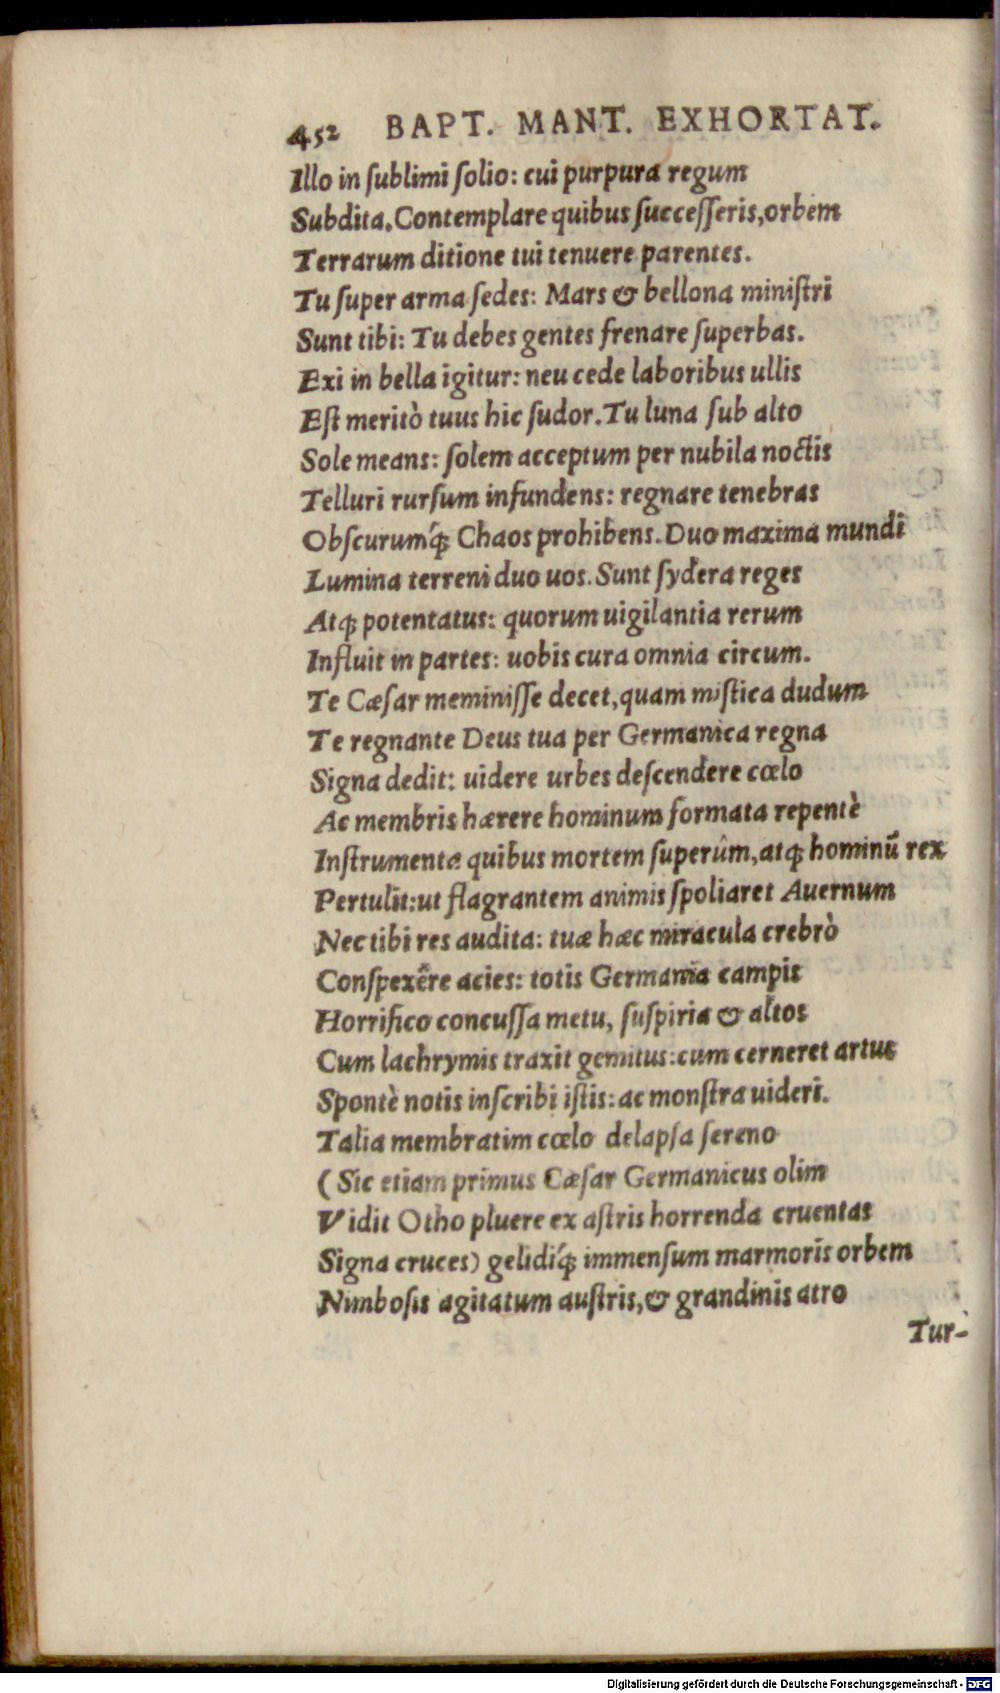 452 BAPT. MANT. EXHORTAT.
Illo in ſublimi ſolio: cui purpura regum
Subdita. Contemplare quibus ſucceſſeris, orbem
Terrarum ditione tui tenuere parentes.
Tu ſuper arma ſedes: Mars & bellona miniſtri
Sunt tibi: Tu debes gentes frenare ſuperbas.
Exi in bella igitur: neu cede laboribus ullis
Eſt meritò tuus hic ſudor. Tu luna ſub alto
Sole means: ſolem acceptum per nubila noctis
Telluri rurſum infundens: regnare tenebras
Obſcurumq́ꝫ Chaos prohibens. Duo maxima mundi
Lumina terreni duo uos. Sunt ſydera reges
Atqꝫ potentatus: quorum uigilantia rerum
Influit in partes: uobis cura omnia circum.
Te Cæſar meminiſſe decet, quam miſtica dudum
Te regnante Deus tua per Germanica regna
Signa dedit: uidere urbes deſcendere cœlo
Ac membris hærere hominum formata repentè
Inſtrumenta quibus mortem superûm, atqꝫ hominũ rex
Pertulit: ut flagrantem animis ſpoliaret Auernum
Nec tibi res audita: tuæ hæc miracula crebrò
Conſpexêre acies: totis Germania campis
Horrifico concuſſa metu, ſuſpiria & altos
Cum lachrymis traxit gemitus: cum cerneret artus
Spontè notis inſcribi iſtis: ac monſtra uideri.
Talia membratim cœlo delapſa ſereno
(Sic etiam primus Cæſar Germanicus olim
Vidit Otho pluere ex aſtris horrenda cruentas
Signa cruces) gelidiq́ꝫ immenſum marmoris orbem
Nimboſis agitatum auſtris, & grandinis atro
Tur-
Digitalisierung gefördert durch die Deutsche Forschungsgemeinschaft - DFG